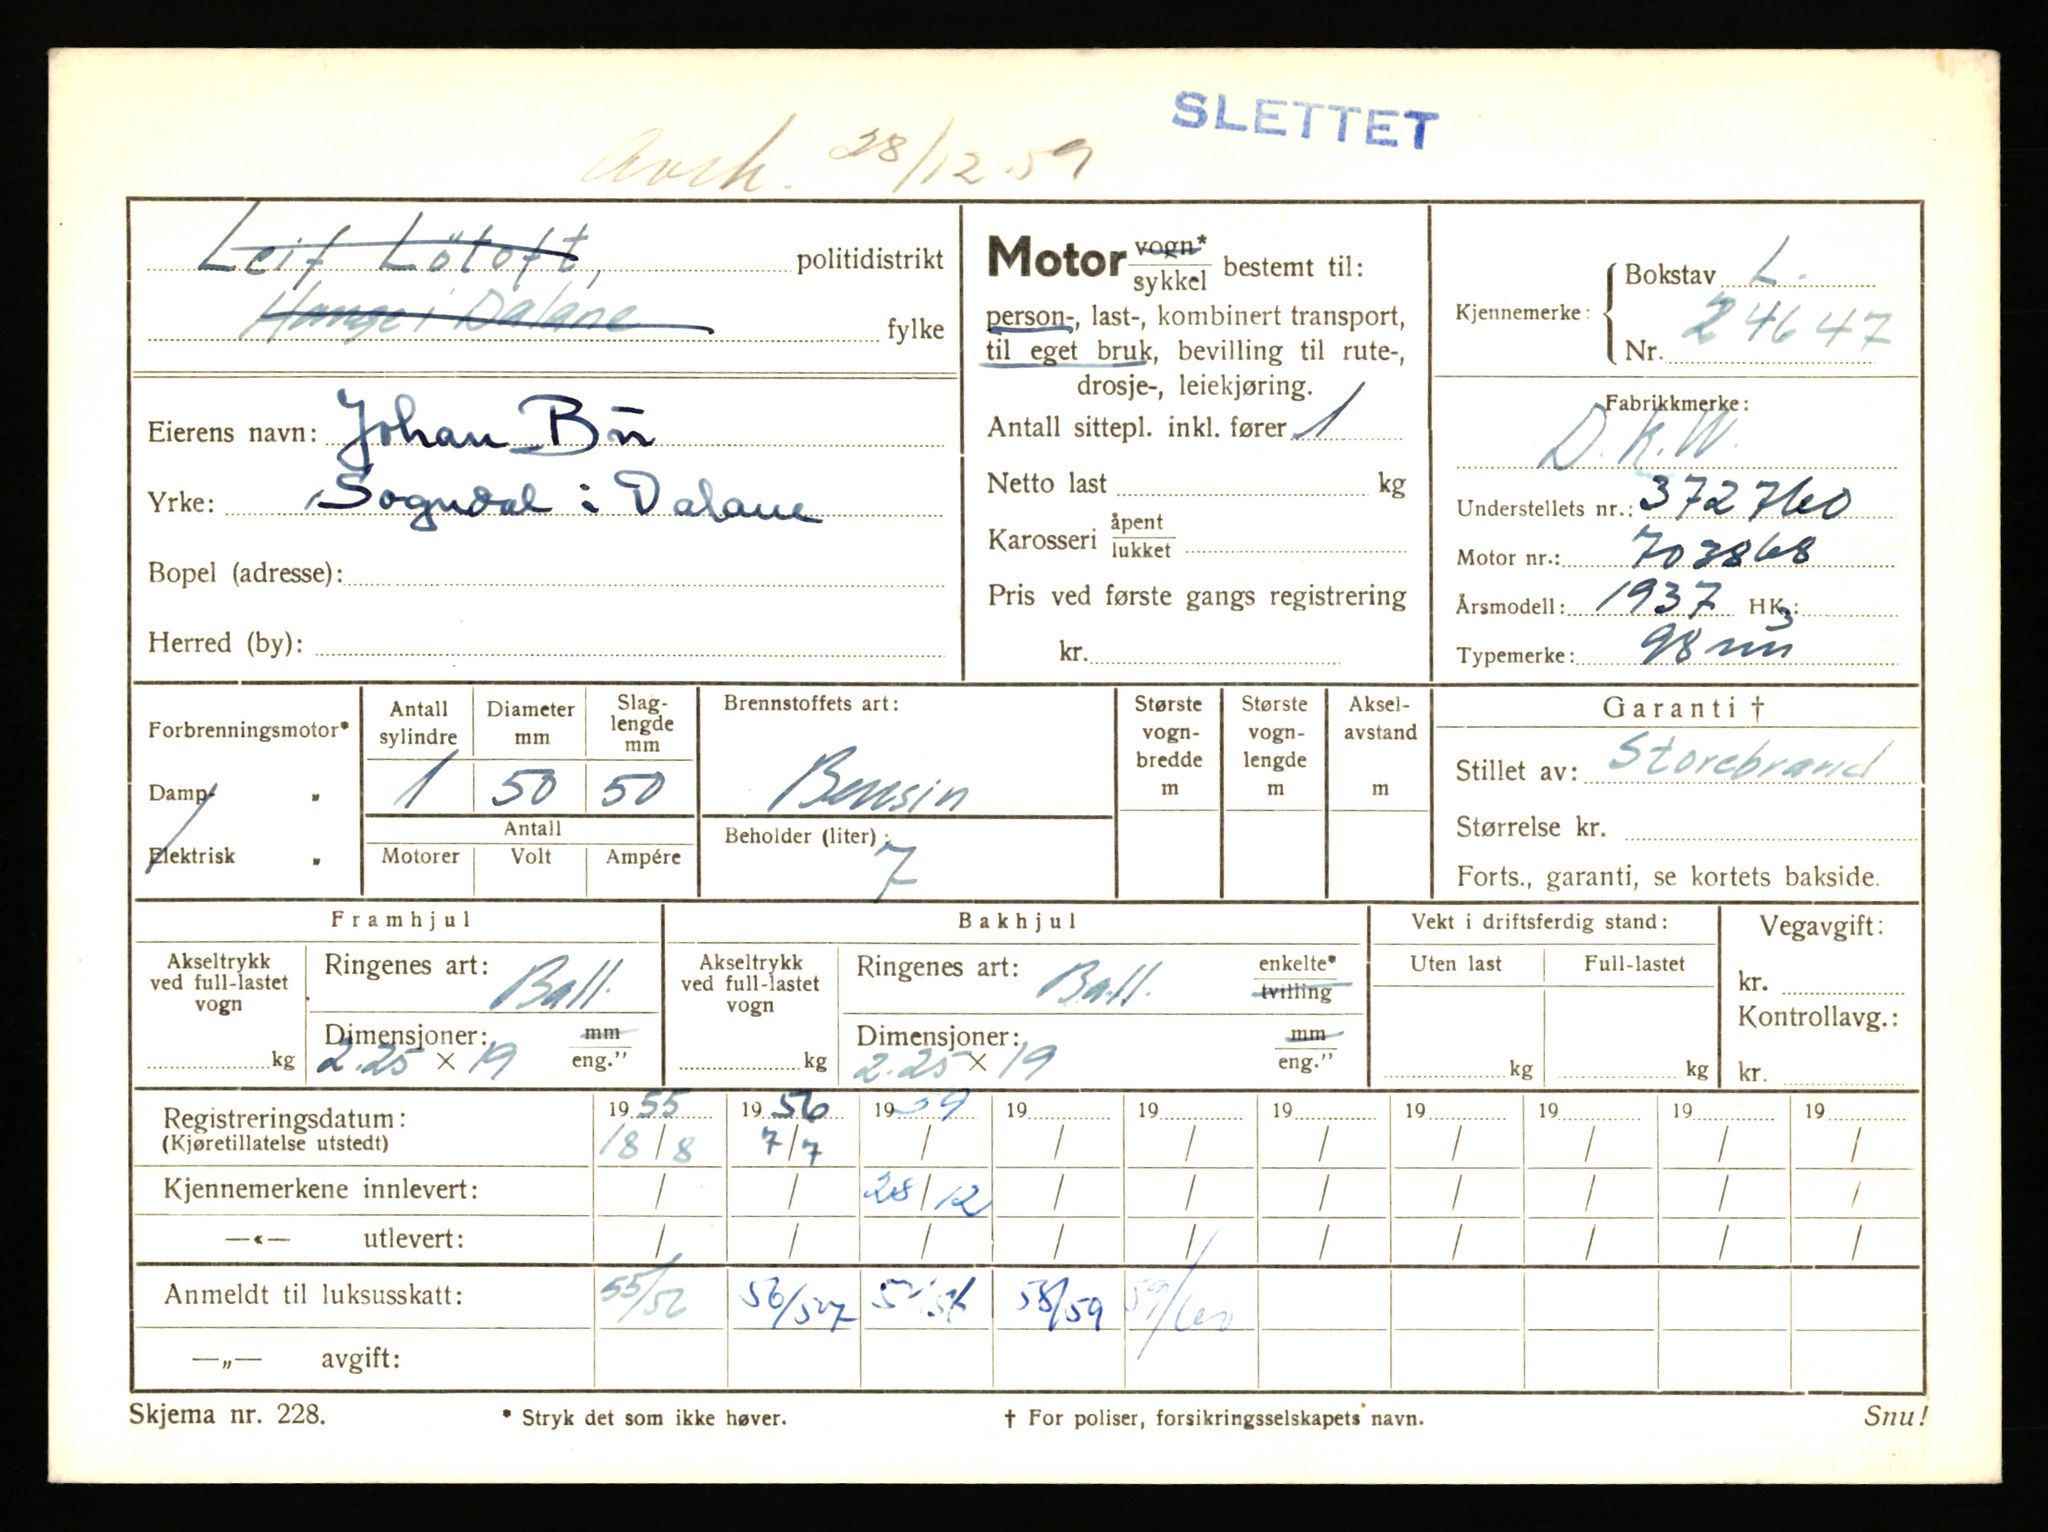 SLETTET
Avsk. 28/12.59
Leif Lötoft, politidistrikt
Hauge i Dalane fylke
Eierens navn: Johan Bü
Yrke: Sogndal i Dalane
Bopel (adresse):
Herred (by):
Motor vogn* sykkel bestemt til:
person-, last-, kombinert transport,
til eget bruk, bevilling til rute-,
drosje-, leiekjøring.
Antall sittepl. inkl. fører 1
Netto last kg
Karosseri åpent lukket
Pris ved første gangs registrering
kr.
Kjennemerke: Bokstav L.
Nr. 24647
Fabrikkmerke:
D.K.W.
Understellets nr.: 372760
Motor nr.: 703868
Årsmodell: 1937 HK.:
Typemerke: 98 mm3
Forbrenningsmotor*
Damp- „
Elektrisk „
Antall sylindre Diameter mm Slag-lengde mm
1 50 50
Antall
Motorer Volt Ampére
Brennstoffets art:
Bensin
Beholder (liter):
7
Største vogn-bredde m
Største vogn-lengde m
Aksel-avstand m
Garanti †
Stillet av: Storebrand
Størrelse kr.
Forts., garanti, se kortets bakside.
Framhjul
Akseltrykk ved full-lastet vogn kg
Ringenes art: Ball.
Dimensjoner: mm eng."
2.25 × 19
Bakhjul
Akseltrykk ved full-lastet vogn kg
Ringenes art: Ball. enkelte* tvilling
Dimensjoner: mm eng."
2.25 × 19
Vekt i driftsferdig stand:
Uten last Full-lastet
kg kg
Vegavgift:
kr.
Kontrollavg.:
kr.
Registreringsdatum: 1955 1956 1959 19 19 19 19 19 19 19
(Kjøretillatelse utstedt) 18/8 7/7 / / / / / / / /
Kjennemerkene innlevert: / / 28/12 / / / / / / /
—«— utlevert: / / / / / / / / / /
Anmeldt til luksusskatt: 55/56 56/57 58/59 59/60
—„— avgift:
Skjema nr. 228. * Stryk det som ikke høver. † For poliser, forsikringsselskapets navn. Snu!